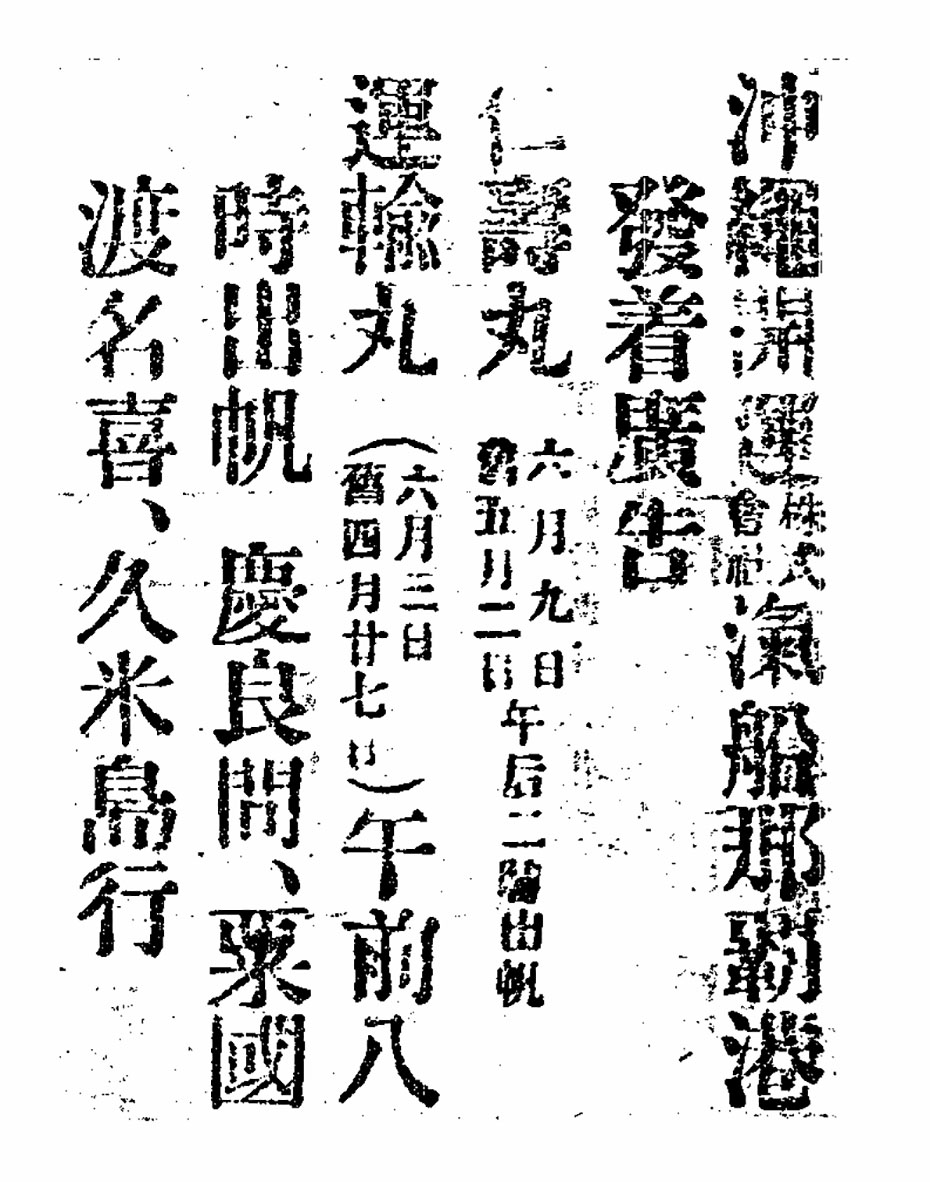 沖繩海運株式會社漁船那覇港
發着廣告
仁壽丸 六月九日
舊五月二日
午后二時出帆
運輸丸 (六月三日
舊四月廿七日)午前八
時出帆 慶良間、粟國
渡名喜、久米島行